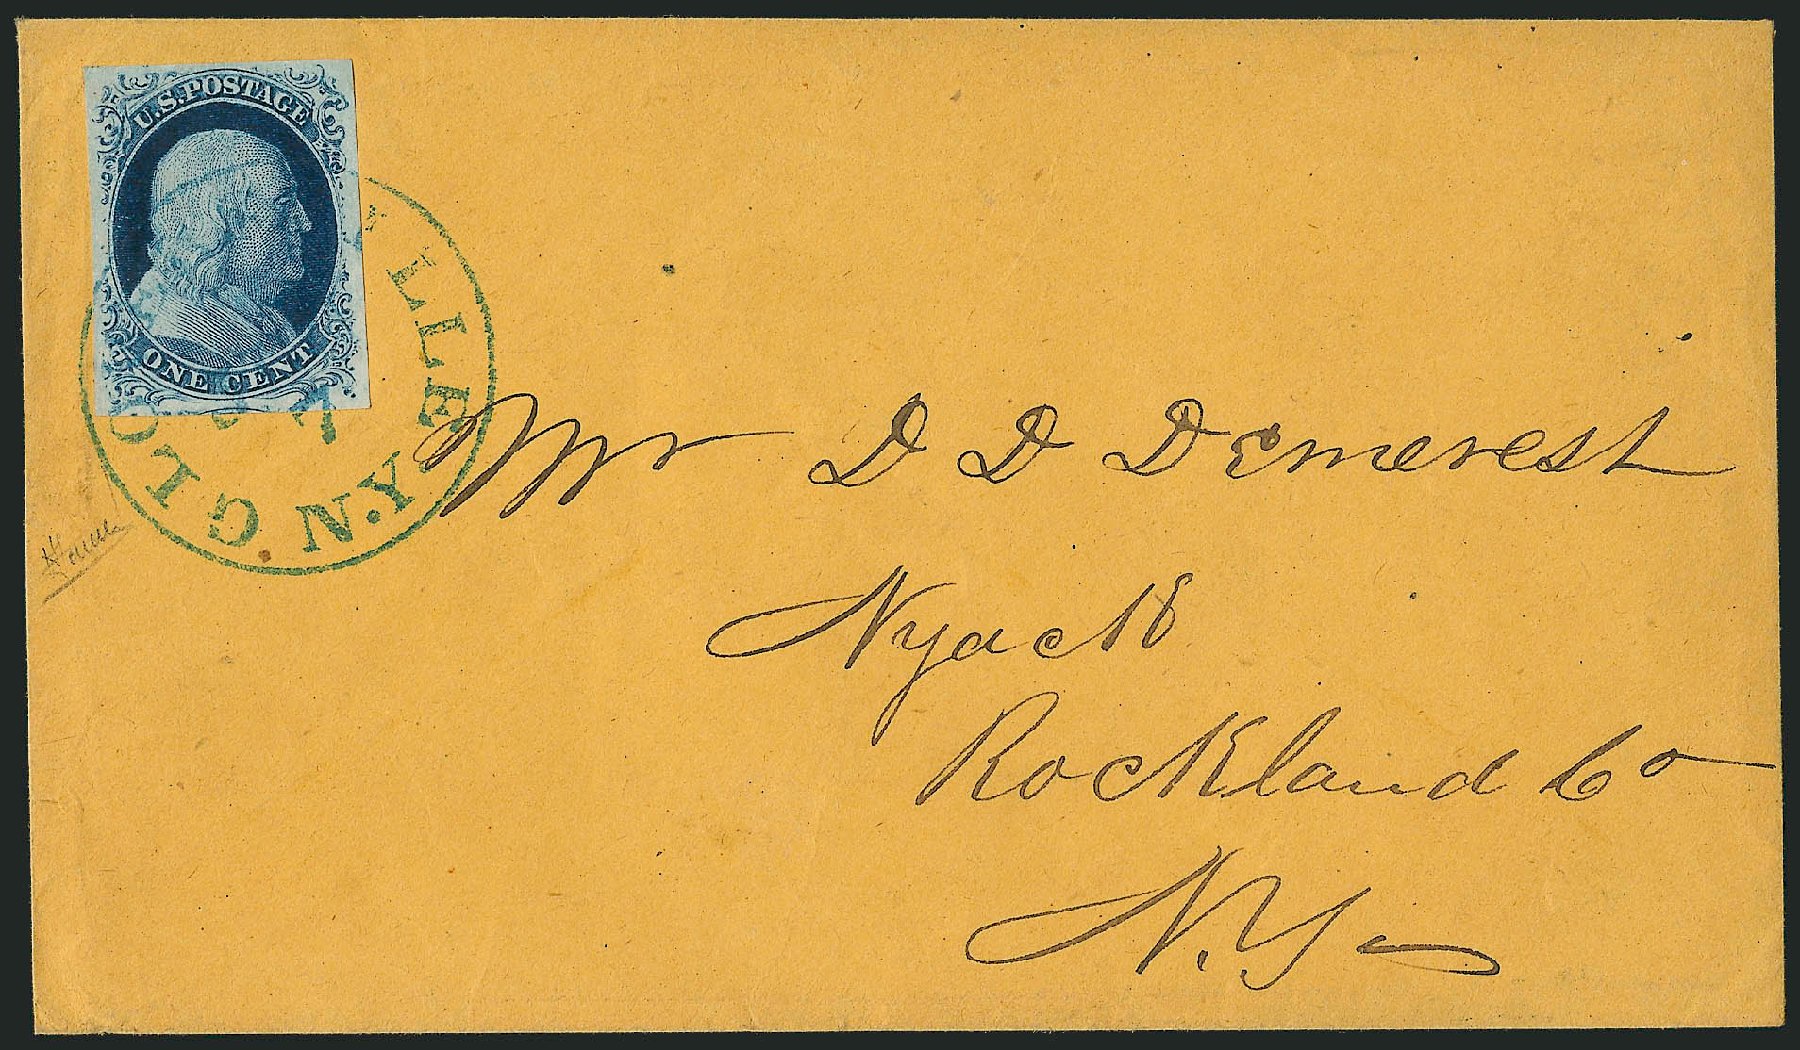 U.S. POSTAGE
ONE CENT
LLE N.Y.
GLO
7
Mr D D Demerest
Nyack
Rockland Co
N.Y